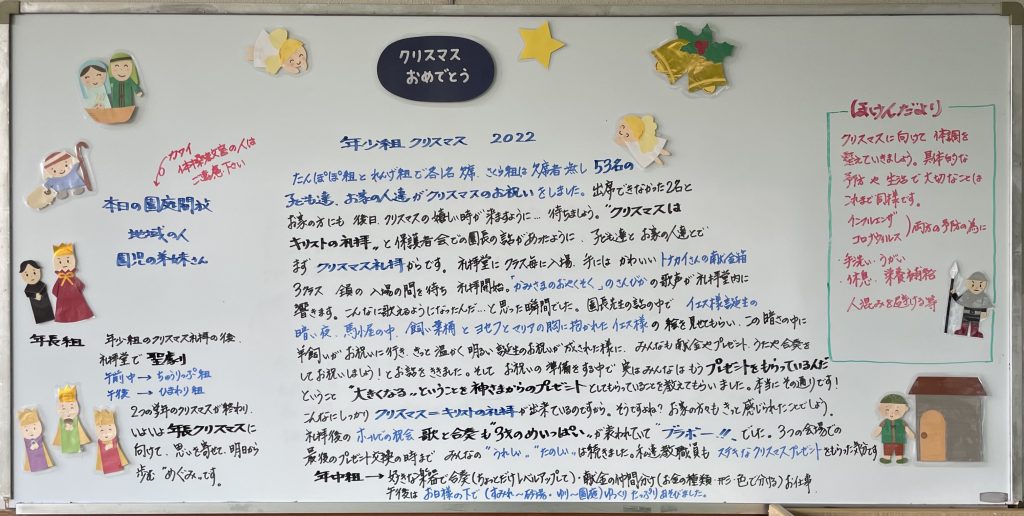 クリスマス
おめでとう
年少組 クリスマス 2022
たんぽぽ組とれんげ組で各1名欠席、さくら組は欠席者無し 53名の
子ども達、お家の人達がクリスマスのお祝いをしました。出席できなかった2名と
お家の方にも後日、クリスマスの嬉しい時が来ますように… 待ちましょう。“クリスマスは
キリストの礼拝”と保護者会での園長の話があったように、子ども達とお家の人達とで
まずクリスマス礼拝からです。礼拝堂にクラス毎に入場、手には かわいいトナカイさんの献金箱
3クラス 全員の入場の間を待ち 礼拝開始。「かみさまのおやくそく」のさんびかの歌声が礼拝堂内に
響きます。こんなに歌えるようになったんだ…と思った瞬間でした。園長先生の話の中で イエス様誕生の
暗い夜、馬小屋の中、飼い葉桶とヨセフとマリヤの胸に抱かれたイエス様の絵を見せてもらい、この暗さの中に
羊飼いがお祝いに行き、きっと温かく明るい誕生のお祝いが成された様に、みんなも献金やプレゼント、うたや合奏を
してお祝いしよう!とお話をききました。そして お祝いの準備をする中で 実はみんなは もうプレゼントをもらっているんだ
ということ “大きくなる”ということを神さまからのプレゼントとしてもらっていることを教えてもらいました。本当にその通りです!
こんなにしっかりクリスマス=キリストの礼拝が出来ているのですから。そうですよね? お家の方々もきっと感じられたことでしょう。
礼拝後のホールでの祝会 歌と合奏も“3才のめいっぱい”が表われていて“ブラボー!!”でした。3つの会場での
最後のプレゼント交換の時まで みんなの“うれしい”“たのしい”は続きました。私達教職員も ステキなクリスマスプレゼントをもらった気分です
年中組 → 好きな楽器で合奏(ちょっとだけレベルアップして)・献金の仲間分け(お金の種類・形・色で分ける)お仕事
午後は お日様の下で(すみれ〜砂場・ゆり〜園庭)ゆっくり たっぷりあそびました。
カワイ
体操教室の人は
ご遠慮下さい
本日の園庭開放
地域の人
園児の弟妹さん
年長組 年少組のクリスマス礼拝の後、
礼拝堂で 聖劇り
午前中 → ちゅうりっぷ組
午後 → ひまわり組
2つの学年のクリスマスが終わり、
いよいよ 年長クリスマスに
向けて、思いを寄せて、明日から
歩む “めぐみ”です。
ほけんだより
クリスマスに向けて 体調を
整えていきましょう。具体的な
予防や 生活で大切なことは
これまと同様です。
インフルエンザ
コロナウィルス)両方の予防の為に
手洗い・うがい
休息、栄養補給
人混みを避ける等